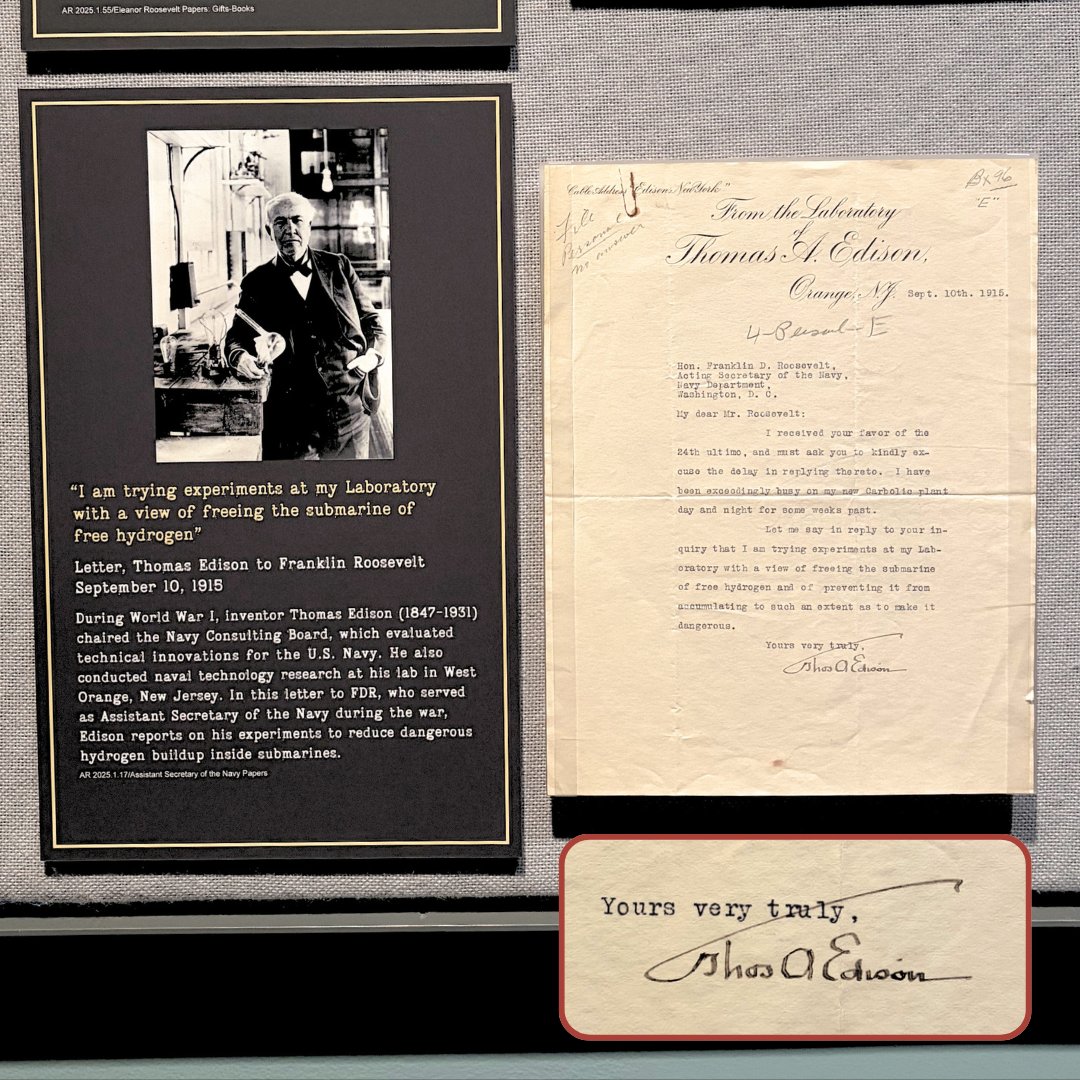 AR 2025.1.55/Eleanor Roosevelt Papers: Gifts-Books
“I am trying experiments at my Laboratory
with a view of freeing the submarine of
free hydrogen”
Letter, Thomas Edison to Franklin Roosevelt
September 10, 1915
During World War I, inventor Thomas Edison (1847-1931)
chaired the Navy Consulting Board, which evaluated
technical innovations for the U.S. Navy. He also
conducted naval technology research at his lab in West
Orange, New Jersey. In this letter to FDR, who served
as Assistant Secretary of the Navy during the war,
Edison reports on his experiments to reduce dangerous
hydrogen buildup inside submarines.
AR 2025.1.17/Assistant Secretary of the Navy Papers
Cable Address "Edison, New York"
Bx 96
"E"
file
Personal
From the Laboratory
of
Thomas A. Edison,
Orange, N.J. Sept. 10th. 1915.
Hon. Franklin D. Roosevelt,
Acting Secretary of the Navy,
Navy Department,
Washington, D. C.
My dear Mr. Roosevelt:
I received your favor of the
24th ultimo, and must ask you to kindly ex-
cuse the delay in replying thereto. I have
been exceedingly busy on my new Carbolic plant
day and night for some weeks past.
Let me say in reply to your in-
quiry that I am trying experiments at my Lab-
oratory with a view of freeing the submarine
of free hydrogen and of preventing it from
accumulating to such an extent as to make it
dangerous.
Yours very truly,
Thos A Edison
Yours very truly,
Thos A Edison